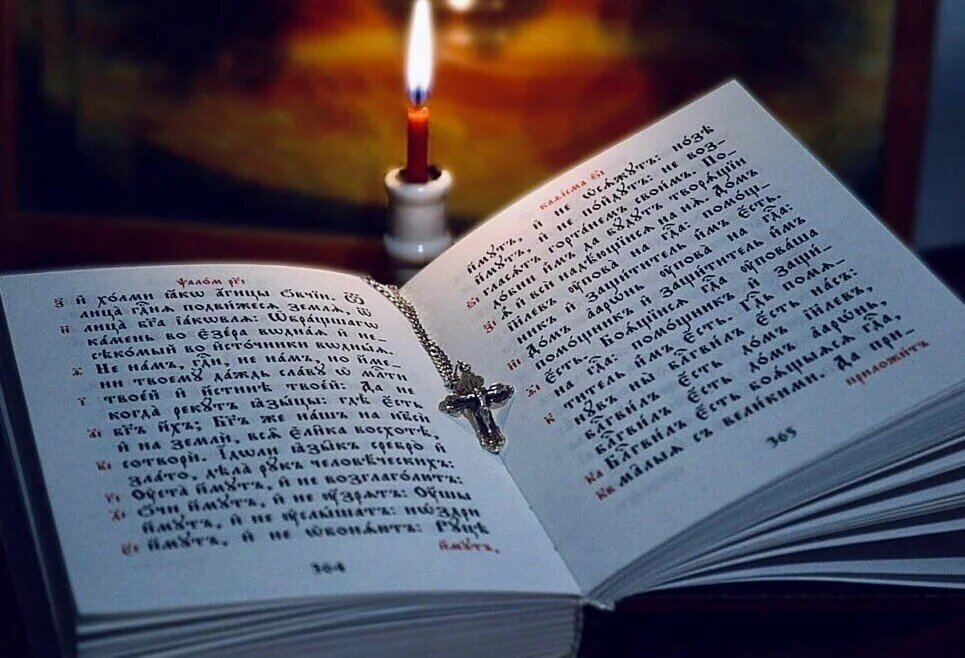 Ѱало́м ргі
з҃ И҆ хо́лми ꙗ҆́кѡ а҆́гнцы ѻ҆́вчїи. Ѿ
лица̀ гдⷭ҇нѧ подви́жесѧ землѧ̀, ѿ
и҃ лица̀ бг҃а і҆а́кѡвлѧ: Ѡ҆бра́щшагѡ
ка́мень во є҆зе́ра водна̑ѧ и҆ не-
сѣко́мый во и҆сто́чники водны̑ѧ.
ѳ҃ Не на́мъ, гдⷭ҇и, не на́мъ, но и҆́ме-
ни твоемꙋ̀ да́ждь сла́вꙋ ѡ҆ млⷭ҇ти
і҃ твое́й и҆ и҆́стинѣ твое́й: Да не
когда̀ рекꙋ́тъ ꙗ҆зы́цы: гдѣ̀ є҆́сть
а҃і бг҃ъ и҆́хъ; Бг҃ъ же на́шъ на нб҃сѝ
и҆ на землѝ, всѧ̑ є҆ли̑ка восхотѣ̀,
в҃і сотворѝ. І҆́дѡли ꙗ҆зы̑къ сребро̀ и҆
зла́то, дѣла̀ рꙋ́къ человѣ́ческихъ:
г҃і Оу҆ста̀ и҆́мꙋтъ, и҆ не возглаго́лютъ:
д҃і ѻ҆́чи и҆́мꙋтъ, и҆ не ᲂу҆́зрѧтъ: Оу҆́шы
и҆́мꙋтъ, и҆ не ᲂу҆слы́шатъ: нѡ́здри
є҃і и҆́мꙋтъ, и҆ не ѡ҆бонѧ́ютъ: Рꙋ́цѣ
и҆́мꙋтъ,
364
каѳі́сма
и҆́мꙋтъ, и҆ не ѡ҆сѧ́жꙋтъ: но́зѣ
и҆́мꙋтъ, и҆ не по́йдꙋтъ: не воз-
ѕ҃і гласѧ́тъ горта́немъ свои́мъ. По-
до́бни и҆̀мъ да бꙋ́дꙋтъ творѧ́щїи
з҃і ѧ҆̀ и҆ всѝ надѣ́ющїисѧ на нѧ̀. До́мъ
і҆и҃левъ ᲂу҆пова̀ на гдⷭ҇а: помо́щ-
никъ и҆ защи́титель и҆̀мъ є҆́сть.
и҃і До́мъ а҆арѡ́нь ᲂу҆пова̀ на гдⷭ҇а:
помо́щникъ и҆ защи́титель и҆̀мъ
ѳ҃і є҆́сть. Боѧ́щїисѧ гдⷭ҇а ᲂу҆пова́ша
на гдⷭ҇а: помо́щникъ и҆ защи́-
к҃ титель и҆̀мъ є҆́сть. Гдⷭ҇ь помѧ-
нꙋ́въ ны̀ блгⷭ҇ви́лъ є҆́сть на́съ:
блгⷭ҇ви́лъ є҆́сть до́мъ і҆и҃левъ,
блгⷭ҇ви́лъ є҆́сть до́мъ а҆арѡ́нь,
к҃а Блгⷭ҇ви́лъ є҆́сть боѧ́щыѧсѧ гдⷭ҇а,
к҃в ма̑лыѧ съ вели́кими. Да при-
приложи́тъ
365